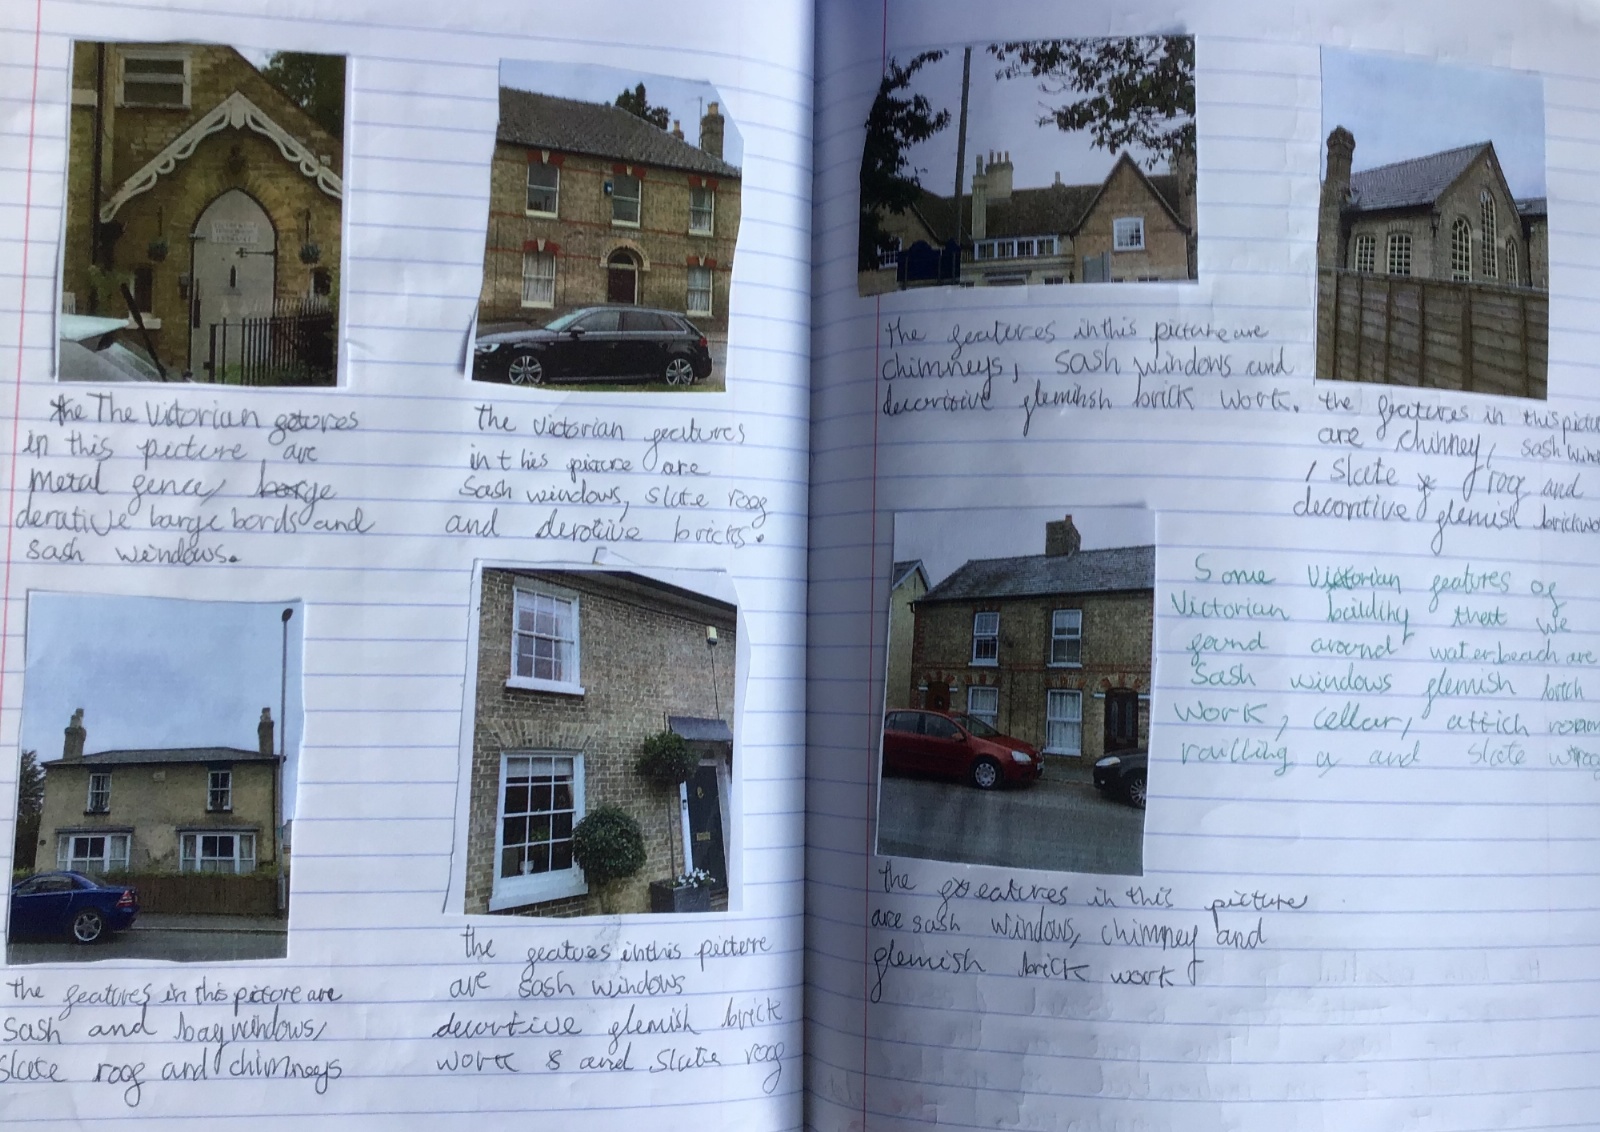 The Victorian featores
in this picture are
Metal fence,
derative barge bords and
sash windows.
the victorian featutres
in this picture are
sash windows, slate roof
and derotive bricks.
the features in this pictore are
Sash and bay windows,
slate roof and chimneys
the featues in this picterre
are sash windows
decortive flemish brick
work & and slate roof
the features in this picture are
chimneys, sash windows and
decoritive flemihsh brick work.
the features in this pictu
are chinney, sash wind
, slate roof and
decoritive flemish brickwo
Some Victorian features of
Victorian building that we
found around waterbeach are
Sash windows flemish brich
work, cellar, attich room
railling and slate roof
the featutres in this picture
are sash windows, chimney and
flemish brick work